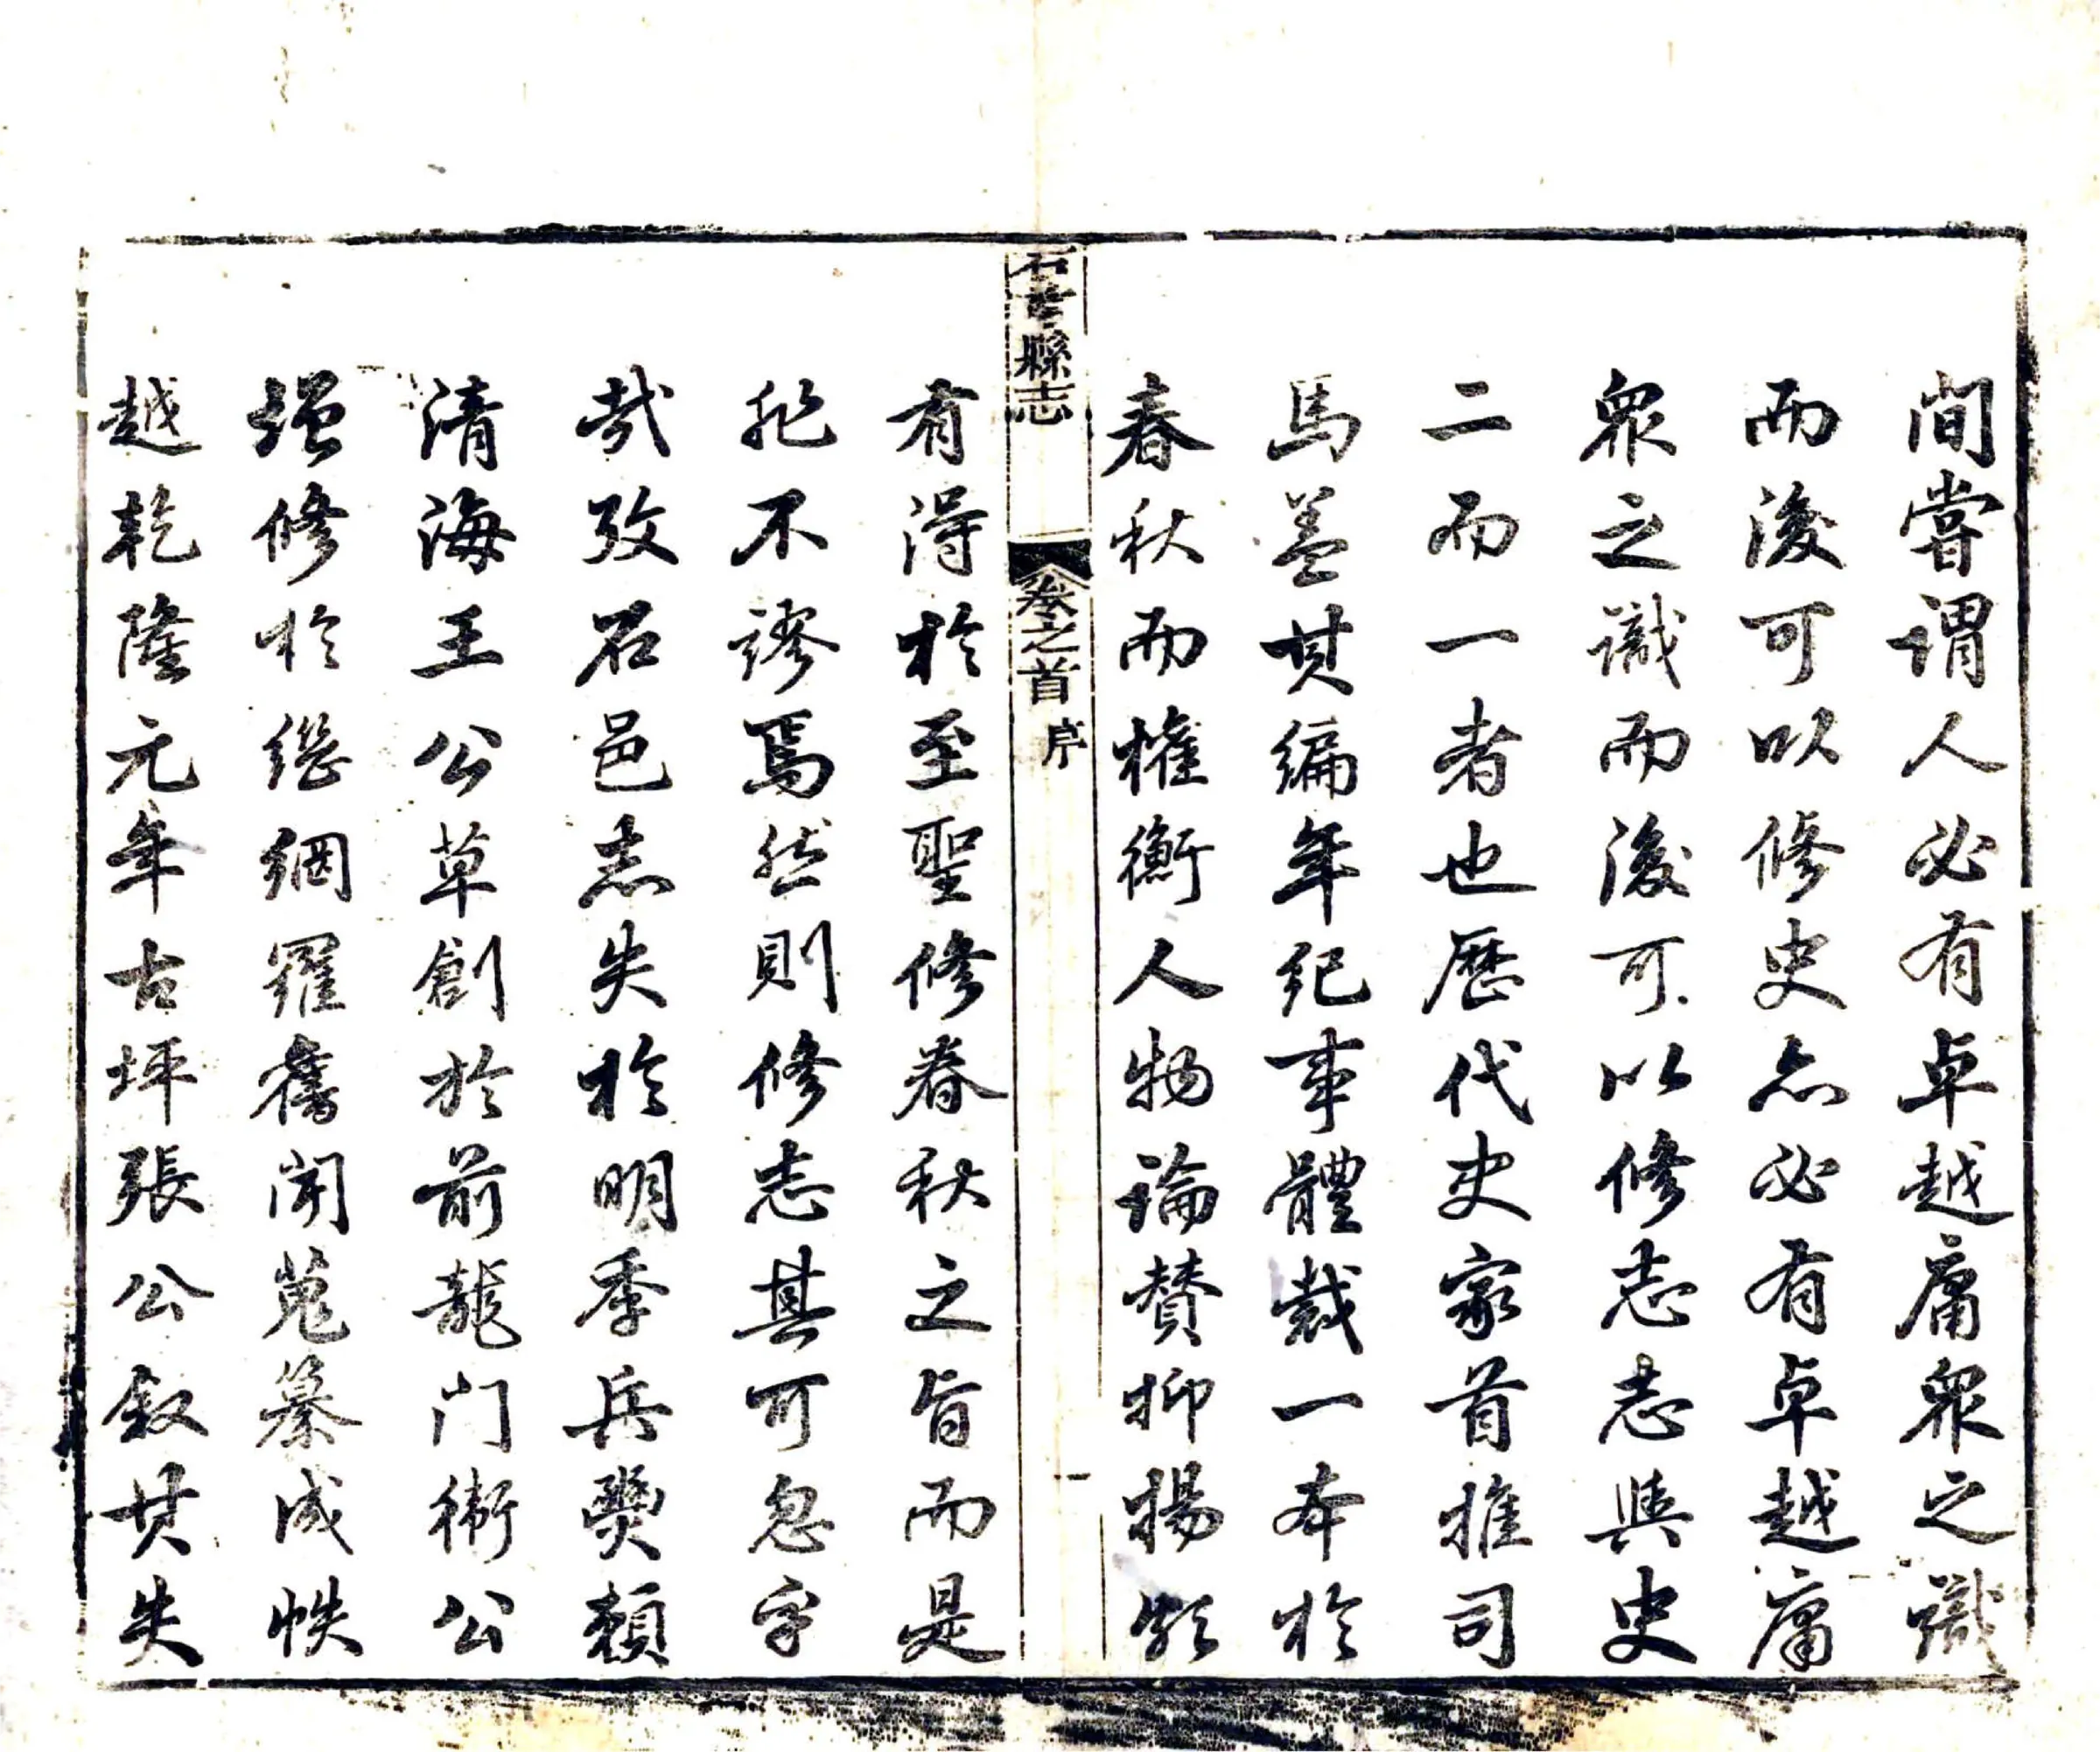 間嘗謂人必有卓越庸眾之識
而後可以修史亦必有卓越庸
眾之識而後可以修志志與史
二而一者也歷代史家首推司
馬蓋其編年紀事體裁一本於
春秋而權衡人物論贊抑揚頗
石首縣志 卷之首 序 一
有得於至聖修春秋之旨而是
非不謬焉然則修志其可忽乎
哉攷石邑志失於明季兵燹賴
清海王公草創於前龍門衛公
增修於繼網羅舊聞蒐纂成帙
越乾隆元年古坪張公敘其失